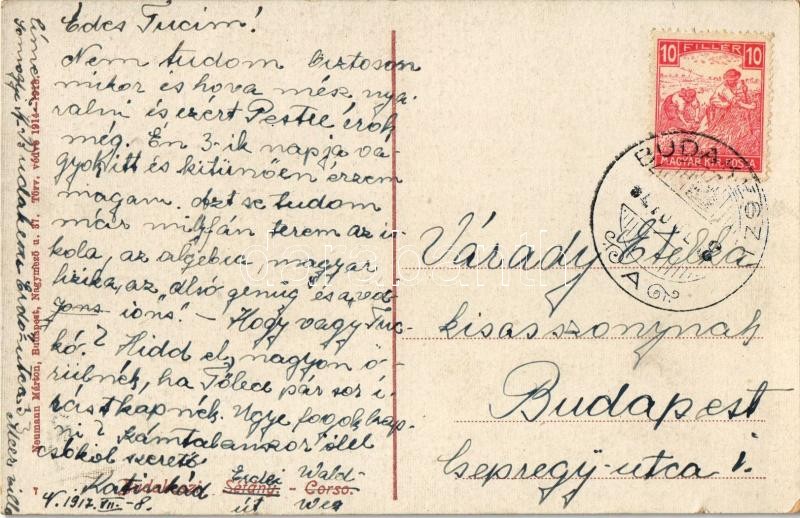 Édes Tucim!
Nem tudom biztosan
mikor és hova mész nya-
ralni és ezért Pestre írok
még. Én 3-ik napja va-
gyok itt és kitünően érzem
magam. Azt se tudom
már milyfán terem az is-
kola, az algebra, magyar
fizika, az "alsó genug és a
ions". - Hogy vagy Tuc-
kó? Hidd el, nagyon ö-
rülnék, ha Tőled pár sor í-
rást kapnék. Ugye fogok kap-
ni? Számtalanszor ölel
csókol szerető
Katiskád
1917. VII. - 8.
Erdei Wald-
Sétány. - Corso.
út Weg
Neumann Márton, Budapest, Nagymező u. 37. Törv. védve 1914-1918.
Budakeszi Erdő utca
FILLÉR
10 10
MAGYAR KIR. POSTA
BUDA
A
Várady Etelka
kisasszonynak
Budapest
Csepregy-utca 1.
darabanth